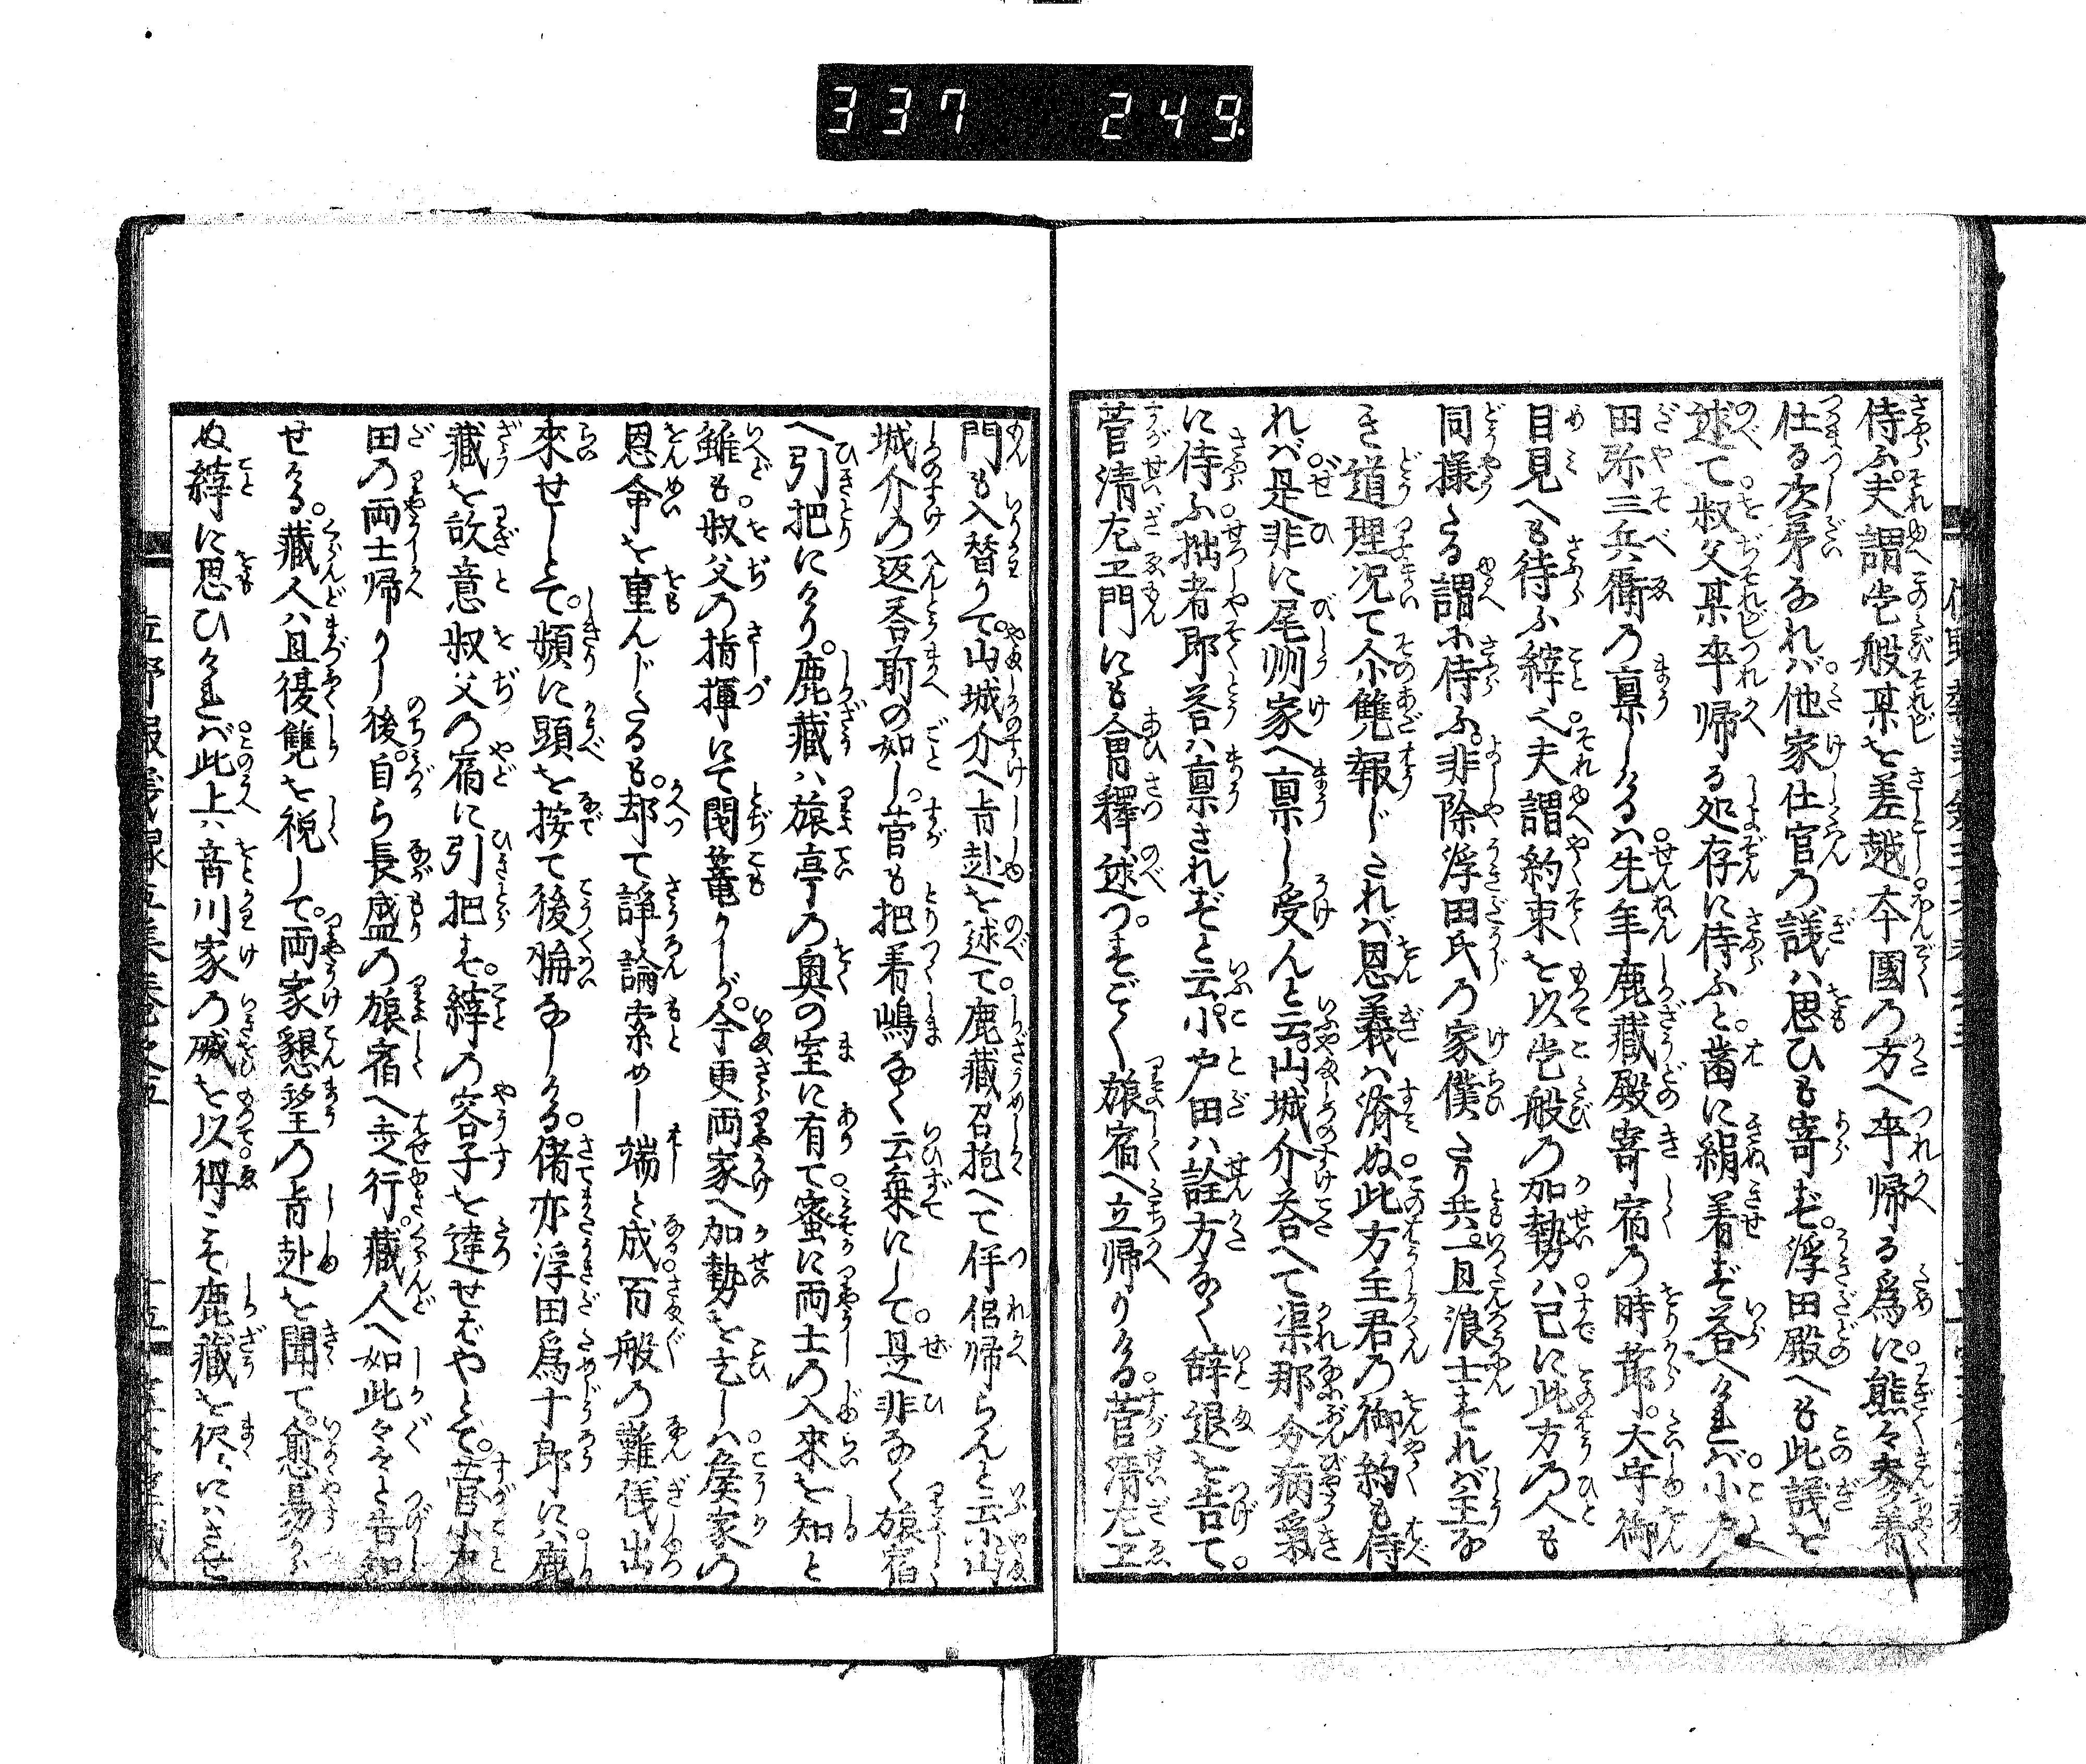 337 249.
侍ふ。夫謂𫝆般某を差越夲國の方へ卒帰る爲に熊々参着
仕る次㐧なれば他家仕官の議は思ひも寄ず。浮田殿へも此議を
述て。叔父某卒帰る処存に侍ふと。歯に絹着ず答へければ。小戸
田弥三兵衛の稟しけるは。先年鹿藏殿寄宿の時節。大守御
目見へも待ふ縡也。夫謂約束を以𫝆般の加勢は。已に此方の人も
同様たる謂に侍ふ。非除浮田氏の家僕たり共。一旦浪士すれば主な
き道理況て尒讐報じされば恩義は済ぬ。此方主君の御約も侍
れば。是非に尾州家へ稟し受んと云。山城介答へて渠那分病気
に侍ふ。拙者郎答は稟されずと云。小戸田は詮方なく辞退を告て。
菅清左エ門にも會釋述つ。すご〱旅宿へ立帰りける。菅清左エ
門も入替りて。山城介へ㫖趣を述て。鹿藏召抱へて伴侶帰らんと云。山
城介の返答前の如し。菅も把着嶋なく云棄にして。是非なく旅宿
へ引把にけり。鹿藏は旅亭の奥の室に有て。蜜に両士の入來を知と
雖も。叔父の指揮にて閉篭りしが。今更両家へ加勢を乞しは。矦家の
恩命を重んじたるも。却て諍論索めし端と成。百般の難儀出
來せしとて。頻に頭を按て後悔なしける。偖亦浮田爲十郎には。鹿
藏を故意叔父の宿に引把せ。縡の容子を違せばやとて。菅小戸
田の両士帰りし後。自ら長盛の旅宿へ走行。藏人へ如此々々と告知
せける。藏人は且復讐を祝して。両家懇望の㫖趣を聞て。愈易から
ぬ縡に思ひければ。此上は音川家の威を以。得こそ鹿藏を侭にはさせ